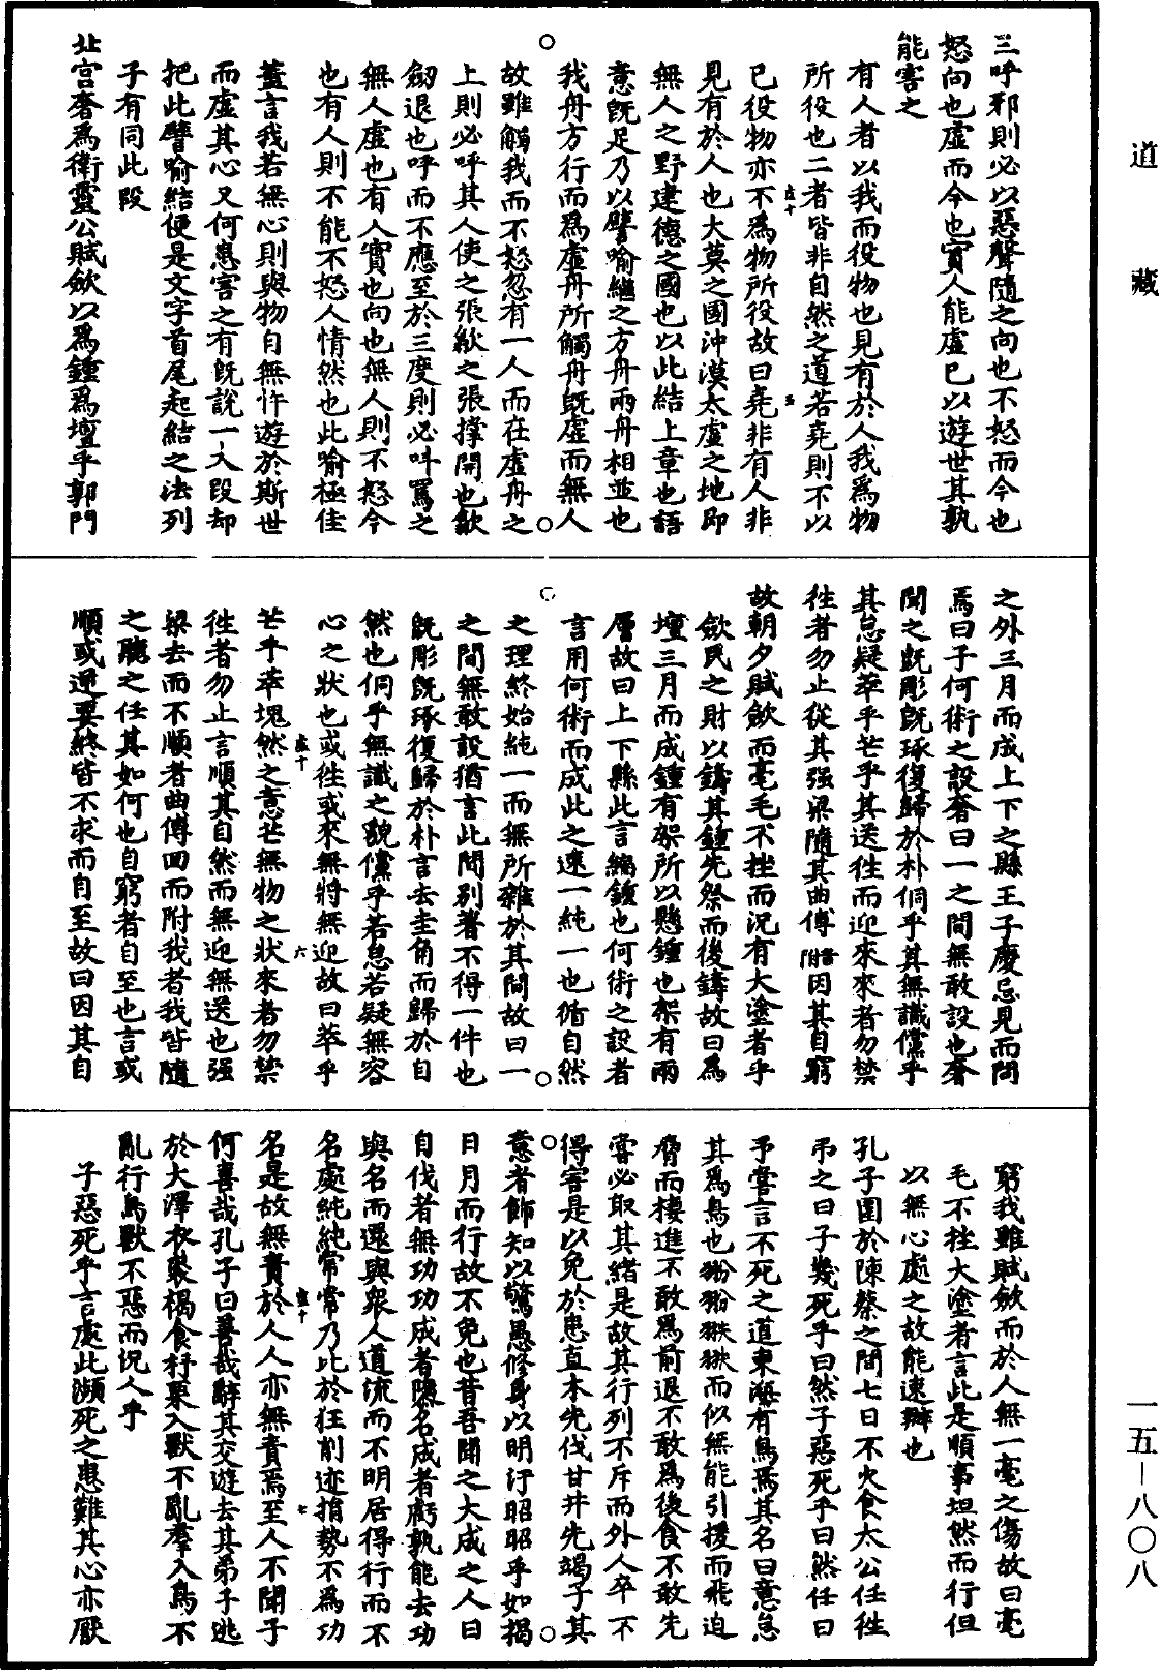 三呼邪則必以惡聲隨之向也不怒而今也
怒向也虛而今也實人能虛已以遊世其孰
能害之
有人者以我而役物也見有於人我為物
所役也二者皆非自然之道若堯則不以
已役物亦不為物所役故曰堯非有人非
見有於人也大莫之國沖漠太虛之地即
無人之野建德之國也以此結上章也語
意旣足乃以譬喻繼之方舟兩舟相並也
我舟方行而為虛舟所觸舟旣虛而無人
故雖觸我而不怒忽有一人而在虛舟之
上則必呼其人使之張歙之張撐開也歙
斂退也呼而不應至於三度則必呌罵之
無人虛也有人實也向也無人則不怒今
也有人則不能不怒人情然也此喻極佳
蓋言我若無心則與物自無忤遊於斯世
而虛其心又何患害之有旣說一人段却
把此譬喻結便是文字首尾起結之法列
子有同此段
北宮奢為衛靈公賦斂以為鍾為壇乎郭門
之外三月而成上下之縣王子慶忌見而問
焉曰子何術之設奢曰一之間無敢設也奢
聞之旣彫旣琢復歸於朴侗乎其無識儻乎
其怠疑萃乎芒乎其送徃而迎來來者勿禁
徃者勿止從其强梁隨其曲傅音附因其自窮
故朝夕賦斂而毫毛不挫而況有大塗者乎
斂民之財以鑄其鍾先祭而後鑄故曰為
壇三月而成鍾有架所以懸鍾也架有兩
層故曰上下縣此言編鍾也何術之設者
言用何術而成此之速一純一也循自然
之理終始純一而無所雜於其間故曰一
之間無敢設猶言此間別著不得一件也
旣彫旣琢復歸於朴言去圭角而歸於自
然也侗乎無識之貌儻乎若怠若疑無容
心之狀也或徃或來無將無迎故曰萃乎
芒乎萃塊然之意芒無物之狀來者勿禁
徃者勿止言順其自然而無迎無送也强
梁去而不順者曲傅回而附我者我皆隨
之聽之任其如何也自窮者自至也言或
順或逆要終皆不求而自至故曰因其自
窮我雖賦斂而於人無一毫之傷故曰毫
毛不挫大塗者言此是順事坦然而行但
以無心處之故能速辦也
孔子圍於陳蔡之間七日不火食太公任徃
弔之曰子幾死乎曰然子惡死乎曰然任曰
予嘗言不死之道東海有鳥焉其名曰意怠
其為鳥也翂翂翐翐而似無能引援而飛迫
脅而棲進不敢為前退不敢為後食不敢先
嘗必取其緒是故其行列不斥而外人卒不
得害是以免於患直木先伐甘井先竭子其
意者飾知以驚愚修身以明汙昭昭乎如揭
日月而行故不免也昔吾聞之大成之人曰
自伐者無功功成者隳名成者虧孰能去功
與名而還與衆人道流而不明居得行而不
名處純純常常乃比於狂削迹捐勢不為功
名是故無責於人人亦無責焉至人不聞子
何喜哉孔子曰善哉辭其交遊去其弟子逃
於大澤衣裘褐食杼栗入獸不亂羣入鳥不
亂行鳥獸不惡而況人乎
子惡死乎言處此瀕死之患難其心亦厭
道藏
一五—八〇八